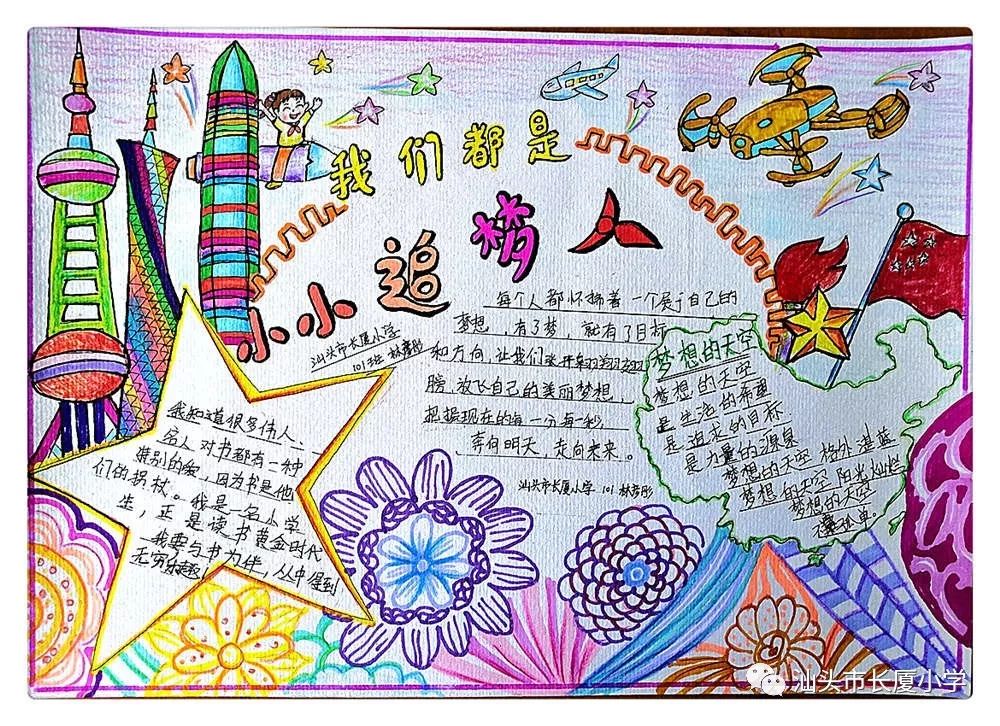 我们都是
小小追梦人
汕头市长厦小学
101班 林彦彤
每个人都怀揣着一个属于自己的
梦想，有了梦，就有了目标
和方向，让我们张开翱翔翅
膀，放飞自己的美丽梦想，
把握现在的每一分每一秒
奔向明天，走向未来。
汕头市长厦小学 101 林彦彤
我知道很多伟人、
名人对书都有一种
难别的爱，因为书是他
们的拐杖。我是一名小学
生，正是读书黄金时代
我要与书为伴，从中得到
无穷乐趣！
梦想的天空
梦想的天空
是生活的希望
是追求的目标
是力量的源泉
梦想的天空 格外湛蓝
梦想的天空 阳光灿烂
梦想的天空
不孤单。
汕头市长厦小学